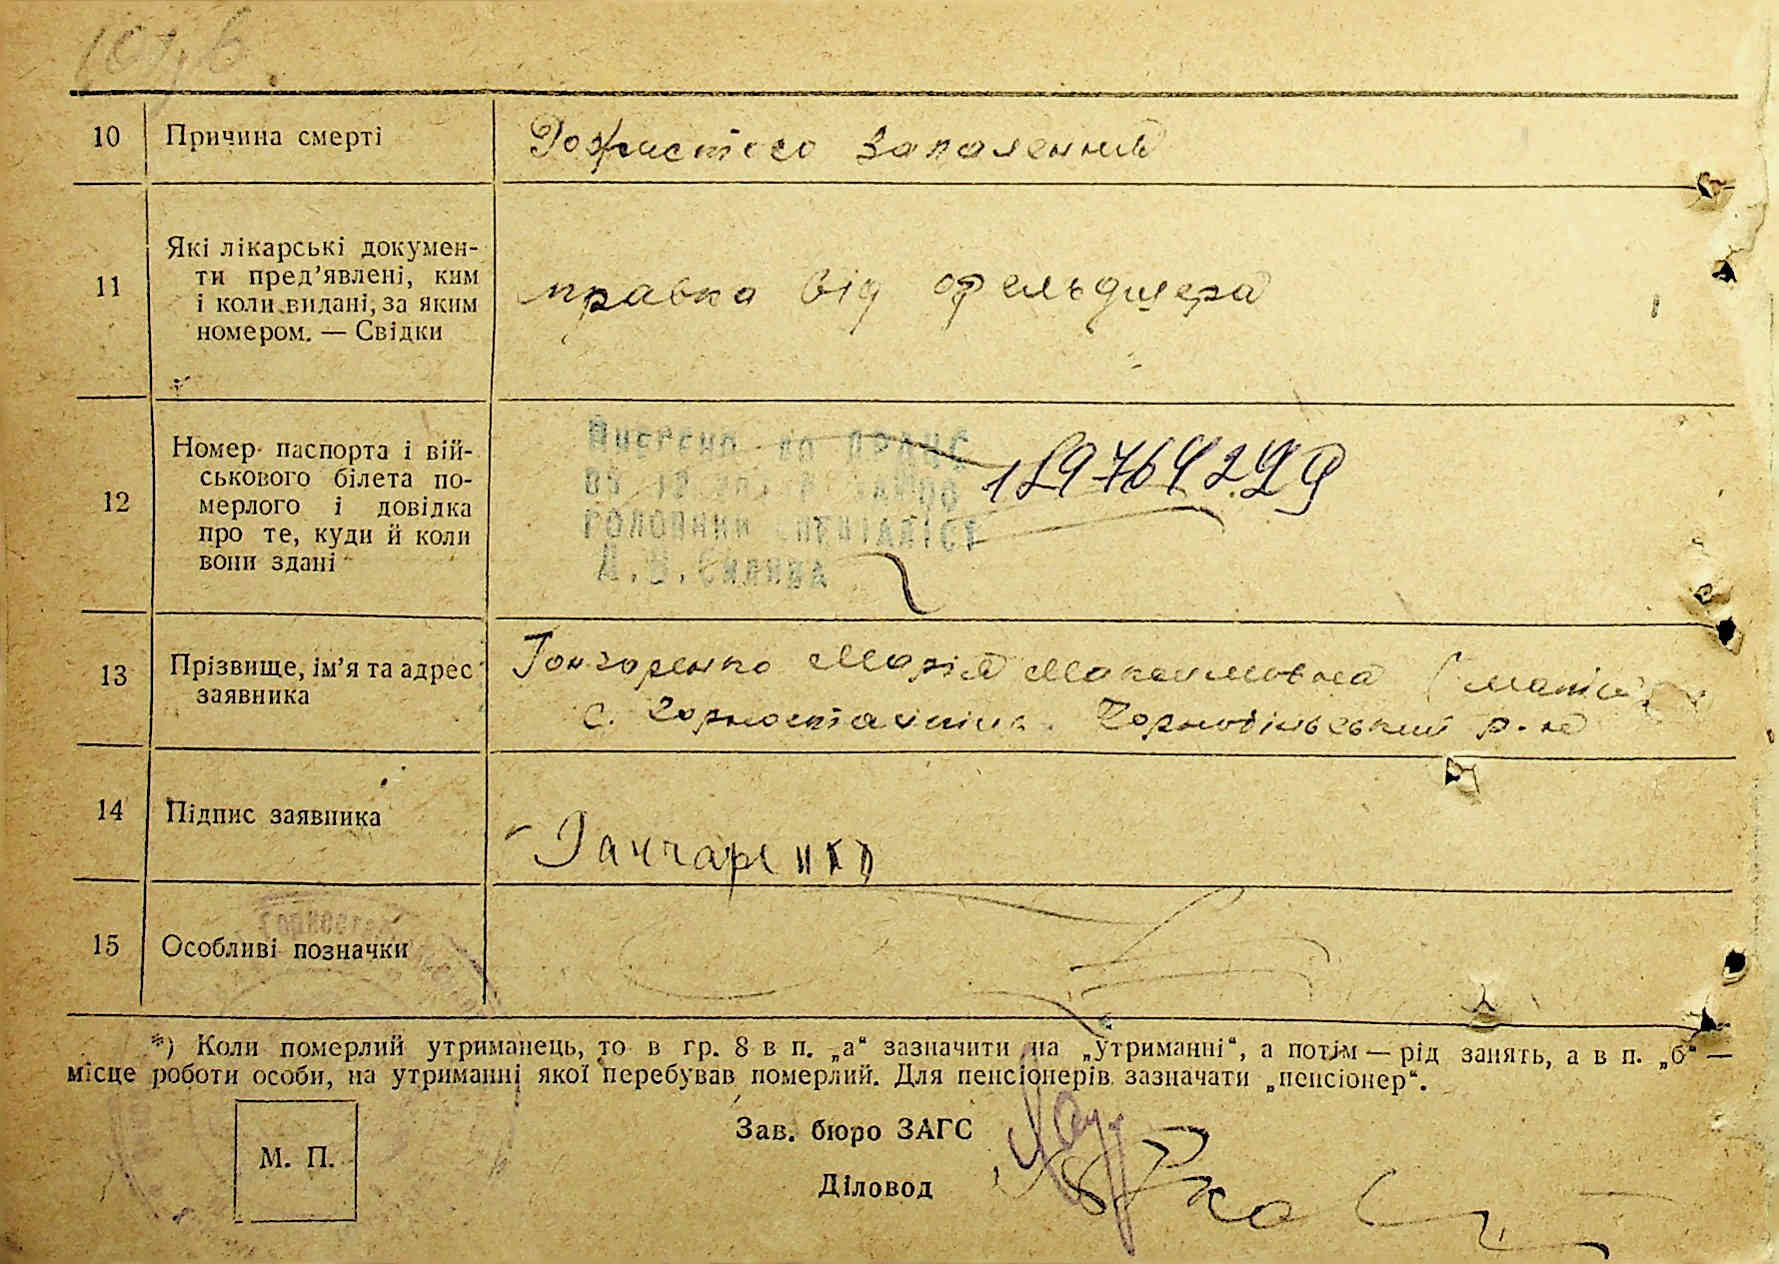 10 Причина смерті
Рожистого запалення
11 Які лікарські докумен-
ти пред’явлені, ким
і коли видані, за яким
номером. — Свідки
правка від фельдшера
12 Номер паспорта і вій-
ськового білета по-
мерлого і довідка
про те, куди й коли
вони здані
Внесено до ДРАЦС
головний спеціаліст
13 Прізвище, ім’я та адрес
заявника
Гончаренко Марія Максимовна (мати)
с. Горностайпіль Чорнобільський р-н
14 Підпис заявника
Ганчаренко
15 Особливі позначки
*) Коли померлий утриманець, то в гр. 8 в п. „а“ зазначити „на утриманні“, а потім — рід занять, а в п. „б“ —
місце роботи особи, на утриманні якої перебував померлий. Для пенсіонерів зазначати „пенсіонер“.
М. П.
Зав. бюро ЗАГС
Діловод